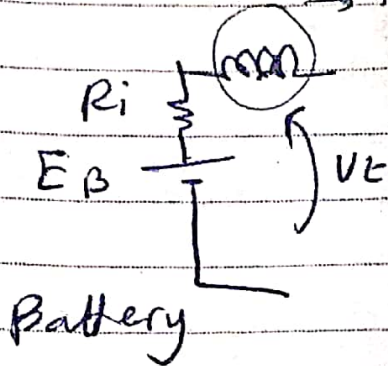 Ri
EB
Vt
Battery